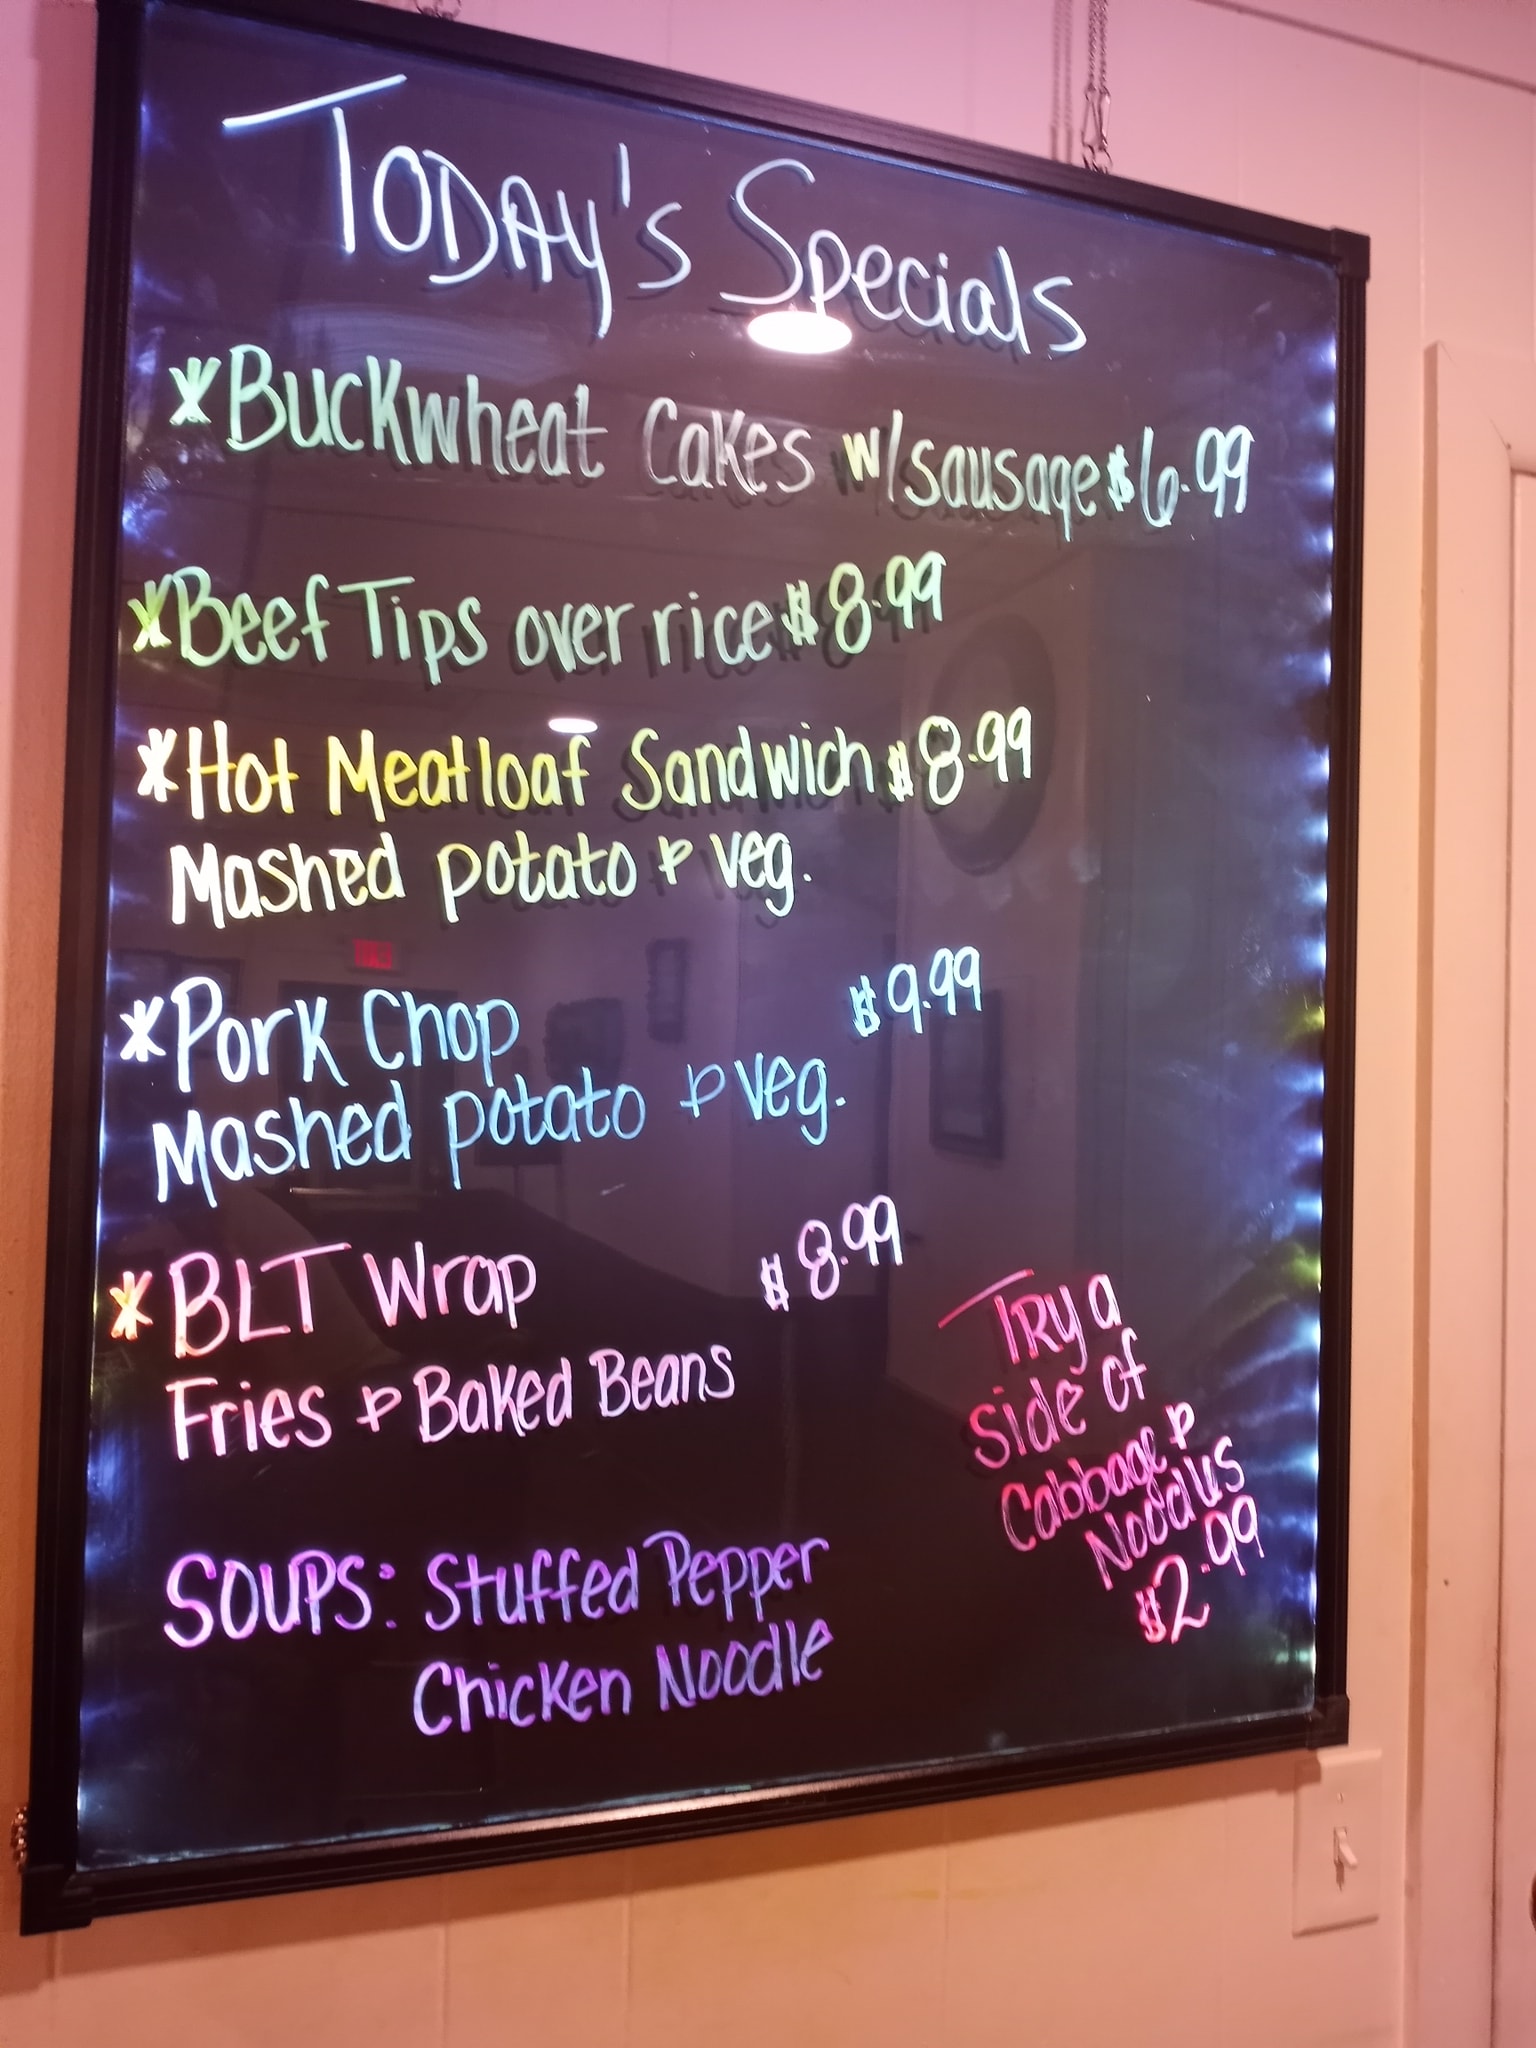 Today's Specials
*Buckwheat Cakes w/sausage $6.99
*Beef Tips over rice $8.99
*Hot Meatloaf Sandwich $8.99
Mashed potato & veg.
*Pork Chop $9.99
Mashed potato & veg.
*BLT Wrap $8.99
Fries & Baked Beans
Try a
side of
Cabbage &
Noodles
$2.99
SOUPS: Stuffed Pepper
Chicken Noodle